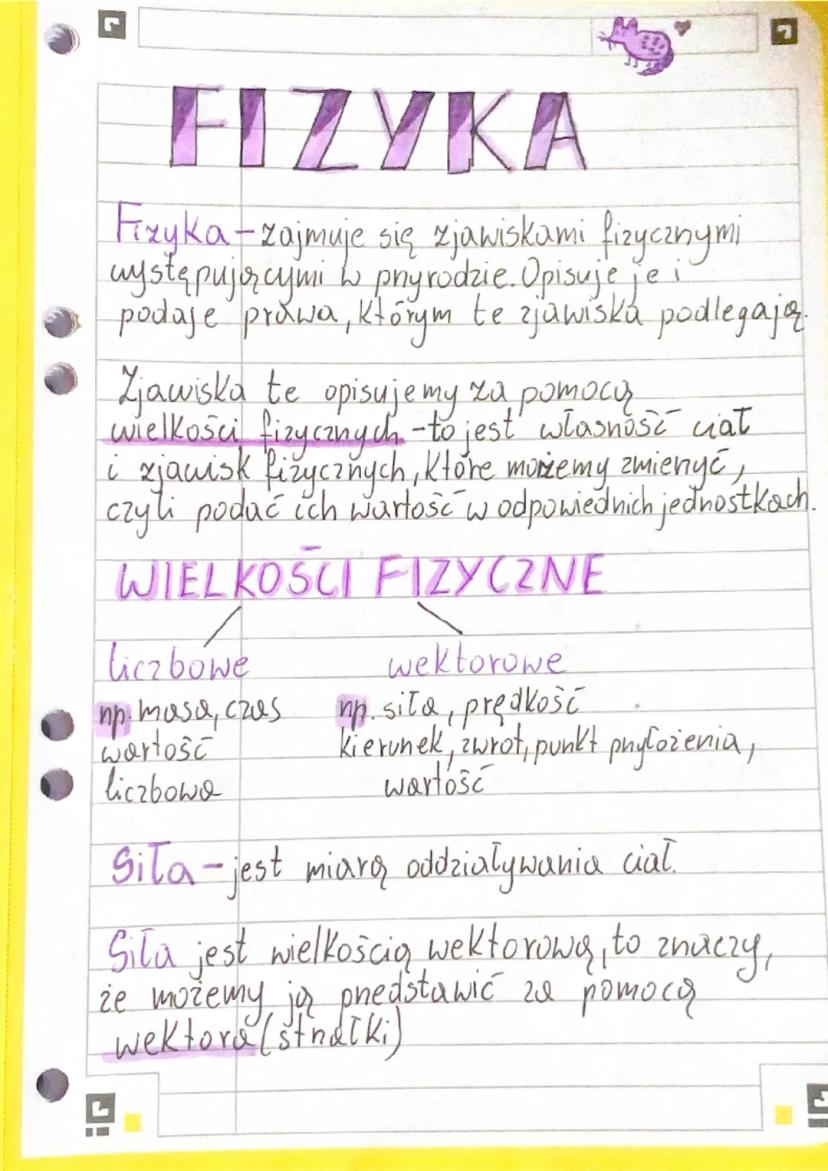 FIZYKA
Fizyka - zajmuje się zjawiskami fizycznymi
występującymi w przyrodzie. Opisuje je i
podaje prawa, którym te zjawiska podlegają.
Zjawiska te opisujemy za pomocą
wielkości fizycznych - to jest własność ciał
i zjawisk fizycznych, które możemy zmierzyć,
czyli podać ich wartość w odpowiednich jednostkach.
WIELKOŚCI FIZYCZNE
liczbowe wektorowe
np. masa, czas np. siła, prędkość
wartość kierunek, zwrot, punkt przyłożenia,
liczbowa wartość
Siła - jest miarą oddziaływania ciał.
Siła jest wielkością wektorową, to znaczy,
że możemy ją przedstawić za pomocą
wektora (strzałki)